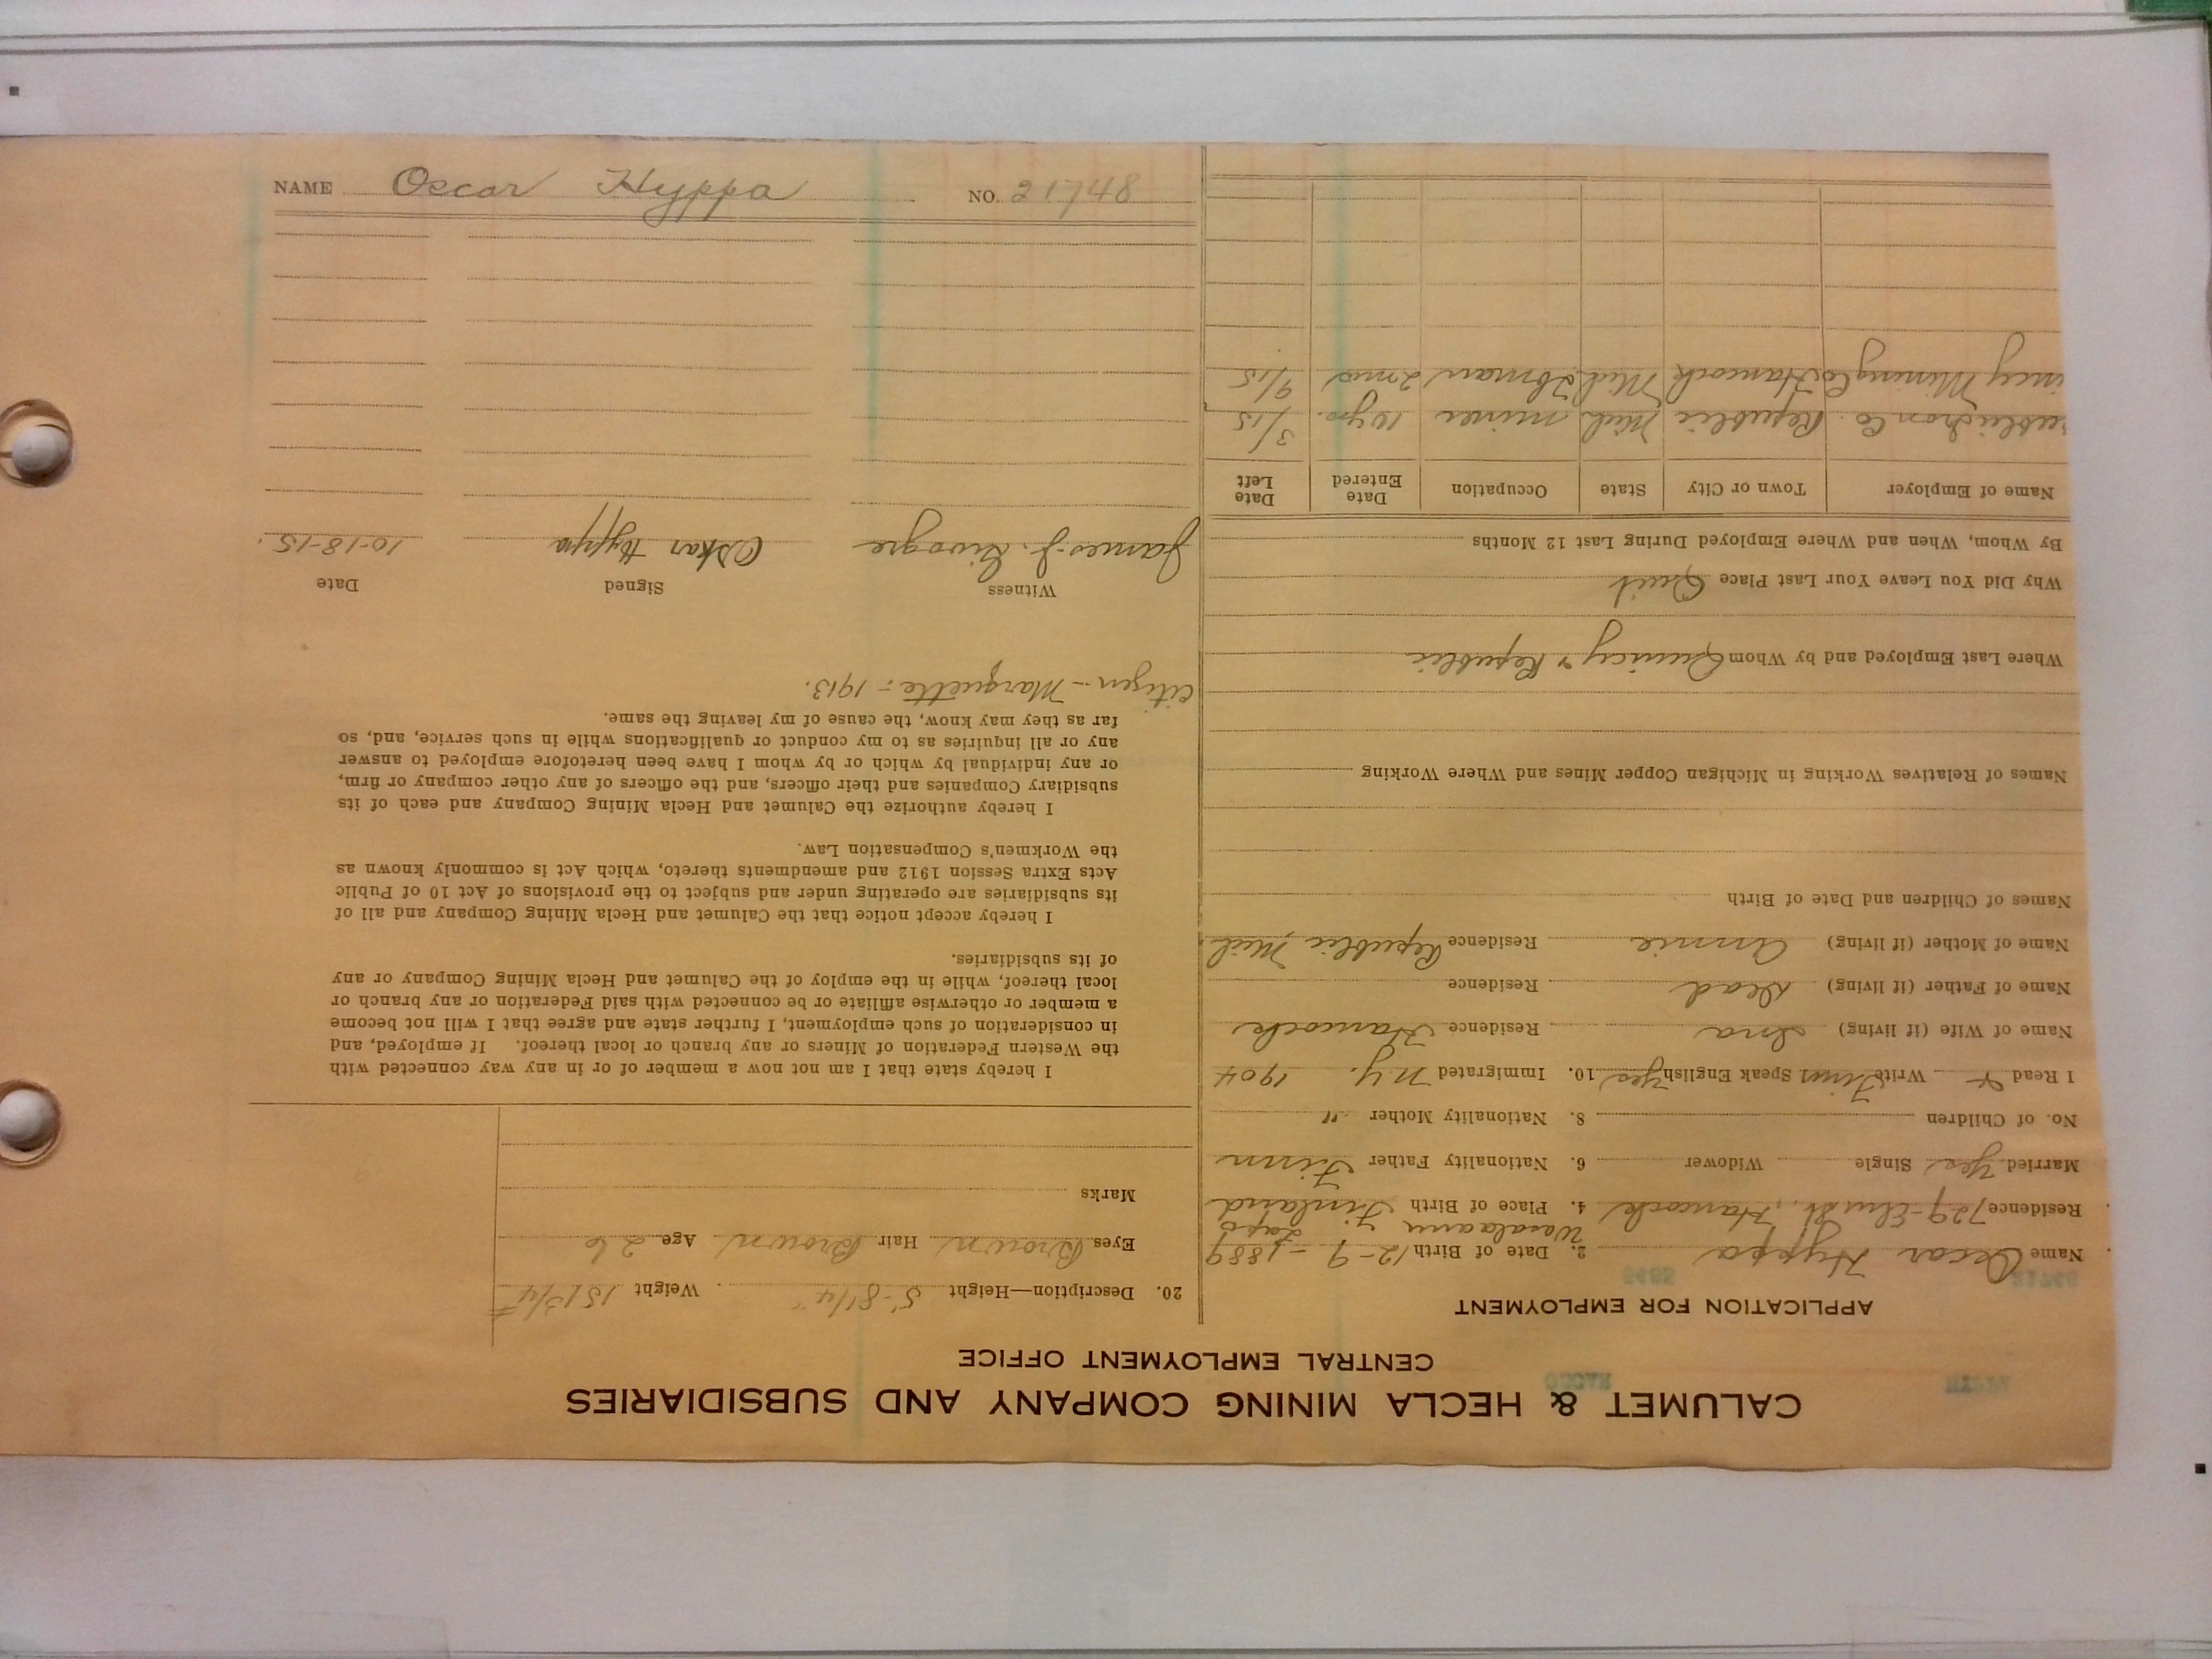 CALUMET & HECLA MINING COMPANY AND SUBSIDIARIES
CENTRAL EMPLOYMENT OFFICE
APPLICATION FOR EMPLOYMENT
Name Oscar Hyppa 2. Date of Birth 12-9-1889
Residence 729-Elm St., Hancock 4. Place of Birth Finland
Married Yes Single Widower 6. Nationality Father Finn
No. of Children 8. Nationality Mother "
I Read & Write Finn Speak English Yes 10. Immigrated N.Y. 1904
Name of Wife (if living) Ina Residence Hancock
Name of Father (if living) Dead Residence
Name of Mother (if living) Annie Residence Republic, Mich
Names of Children and Date of Birth
Names of Relatives Working in Michigan Copper Mines and Where Working
Where Last Employed and by Whom Quincy & Republic
Why Did You Leave Your Last Place Quit
By Whom, When and Where Employed During Last 12 Months
Name of Employer Town or City State Occupation Date Entered Date Left
ublic Iron Co. Republic Mich miner 10 yrs. 3/15
incy Mining Co. Hancock Mich 2 mos 9/15
20. Description—Height 5'-8 1/4" Weight 151 3/4#
Eyes Brown Hair Brown Age 26
Marks
I hereby state that I am not now a member of or in any way connected with
the Western Federation of Miners or any branch or local thereof. If employed, and
in consideration of such employment, I further state and agree that I will not become
a member or otherwise affiliate or be connected with said Federation or any branch or
local thereof, while in the employ of the Calumet and Hecla Mining Company or any
of its subsidiaries.
I hereby accept notice that the Calumet and Hecla Mining Company and all of
its subsidiaries are operating under and subject to the provisions of Act 10 of Public
Acts Extra Session 1912 and amendments thereto, which Act is commonly known as
the Workmen's Compensation Law.
I hereby authorize the Calumet and Hecla Mining Company and each of its
subsidiary Companies and their officers, and the officers of any other company or firm,
or any individual by which or by whom I have been heretofore employed to answer
any or all inquiries as to my conduct or qualifications while in such service, and, so
far as they may know, the cause of my leaving the same.
Citizen - Marquette - 1913.
Witness Signed Date
James J. Oskar Hyppa 10-18-15.
NAME Oscar Hyppa NO. 21748